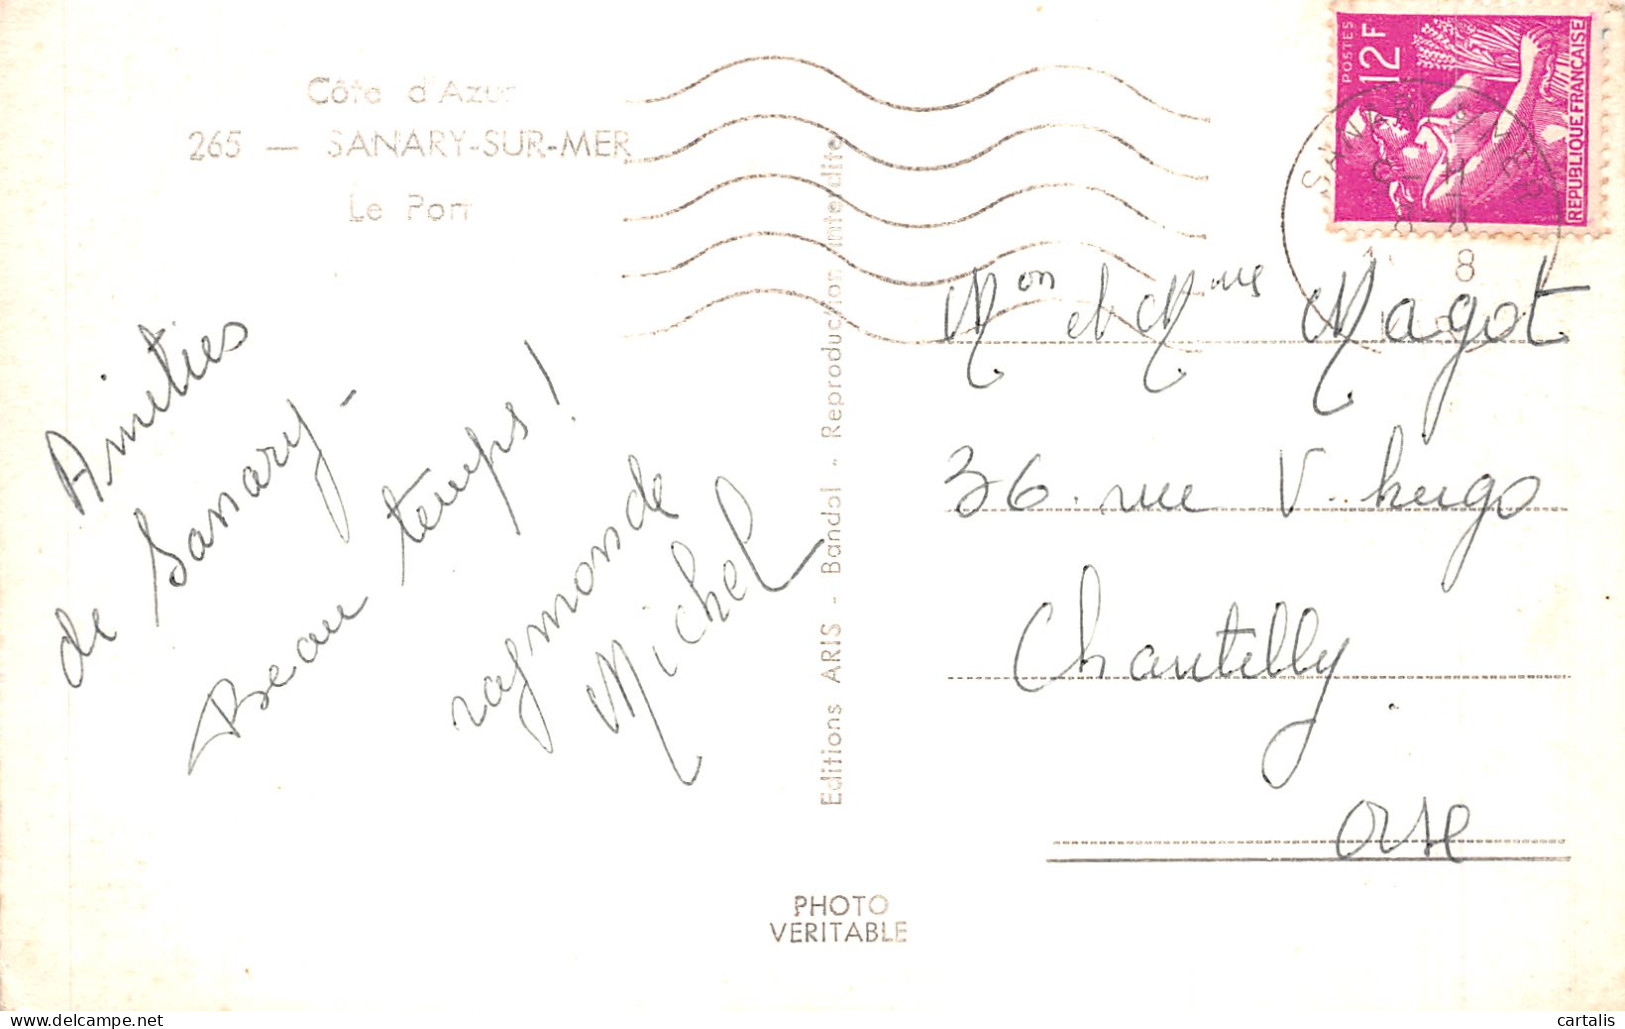 Côte d'Azur
265 — SANARY-SUR-MER
Le Port
POSTES
12F
REPUBLIQUE FRANÇAISE
Amitiés
de Sanary -
Beau temps !
raymonde
Michel
Editions ARIS - Bandol - Reproduction interdite
Mon et Mme Magot
36 rue V. hugo
Chantilly
oise
PHOTO
VERITABLE
cartalis